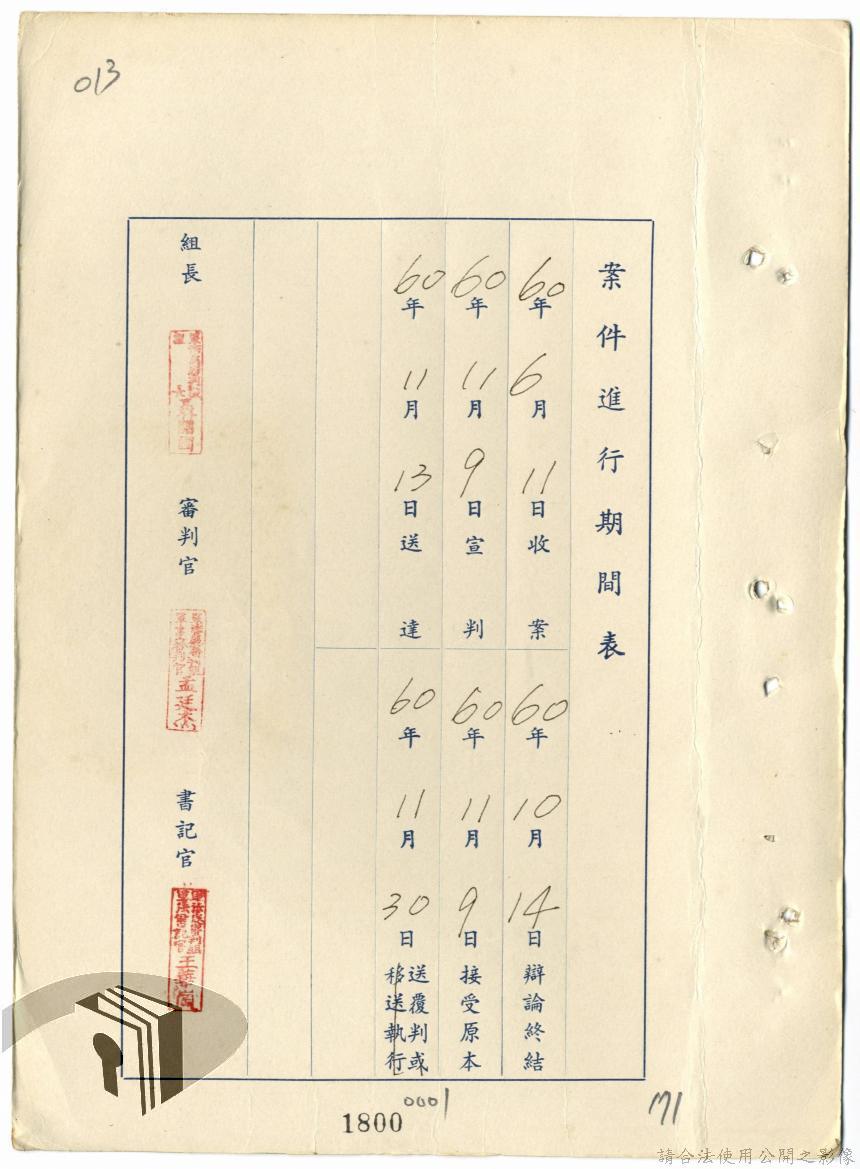 013
案件進行期間表
60年6月11日收案
60年10月14日辯論終結
60年11月9日宣判
60年11月9日接受原本
60年11月13日送達
60年11月30日送覆判或
移送執行
組長
審判官
孟廷杰
書記官
王
1800
0001
171
請合法使用公開之影像